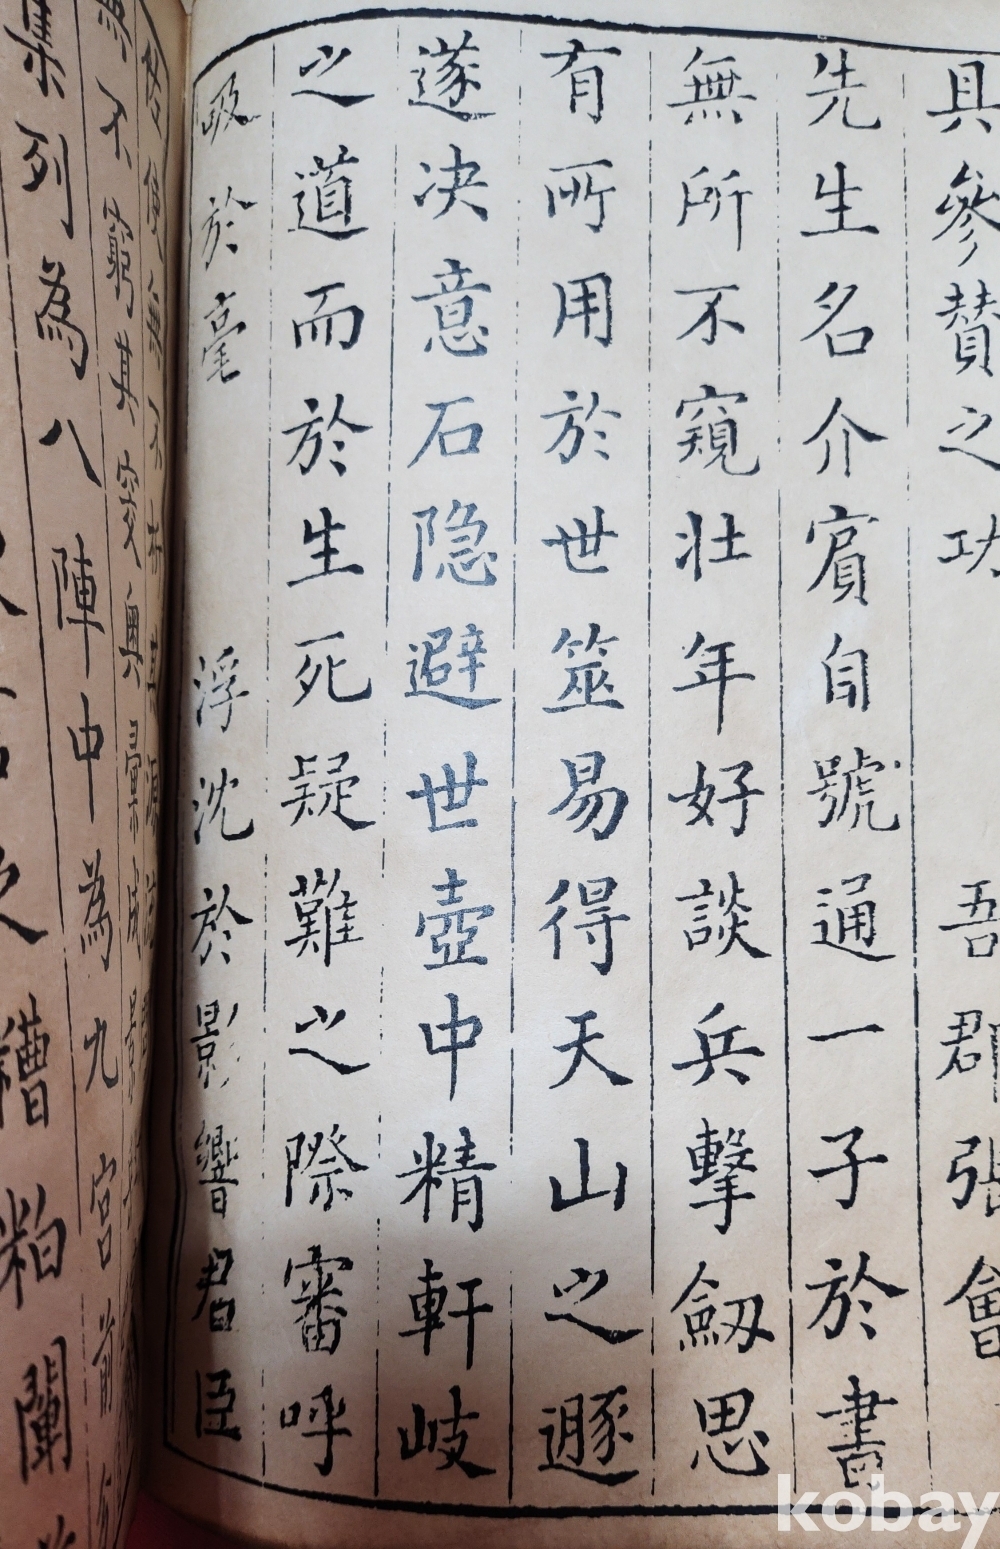 具參贊之功 吾郡張會
先生名介賓自號通一子於書
無所不窺壯年好談兵擊劒思
有所用於世筮易得天山之遯
遂决意石隐避世壺中精軒岐
之道而於生死疑難之際審呼
吸於毫 浮沈於影響君臣
不窮其突奧
列為八陣中為九宮前
糟粕闡
kobay